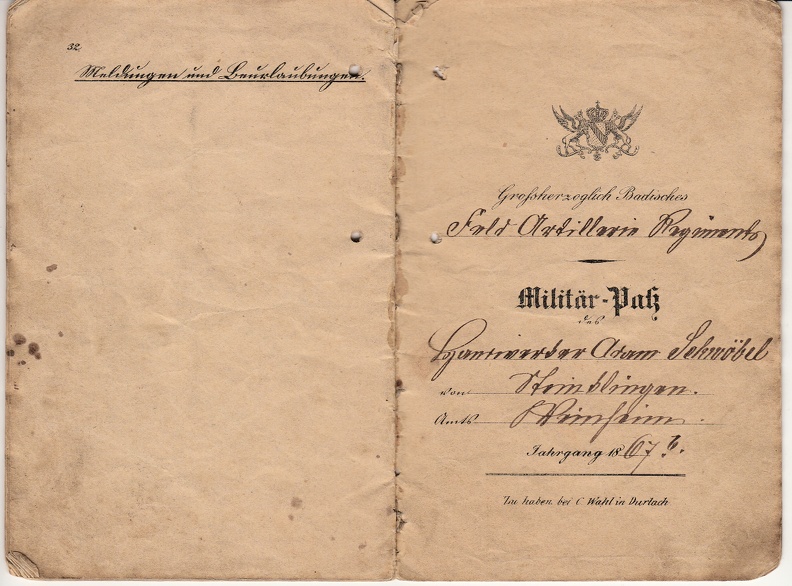 32.
Meldungen und Beurlaubungen.
Großherzoglich Badisches
Feld Artillerie Regiments
Militär-Paß
des
Adam Schwöbel
von
Amts Weinheim.
Jahrgang 1867
Zu haben bei C Wahl in Durlach